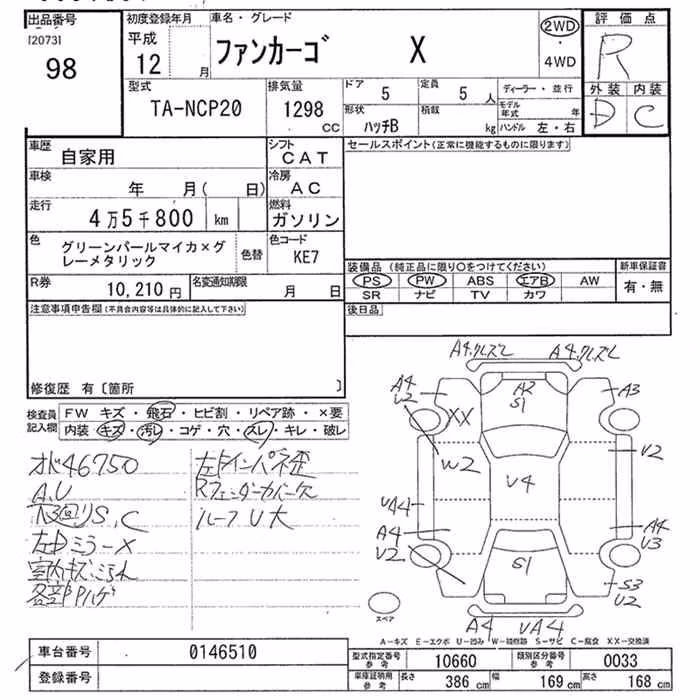 出品番号
[2073]
98
初度登録年月
平成
12 月
車名・グレード
ファンカーゴ X
2WD
・
4WD
評価点
R
外装 内装
D C
型式
TA-NCP20
排気量
1298
CC
ドア
5
定員
5 人
形状
ハッチB
積載
kg
ディーラー・並行
モデル年式 年
ハンドル 左・右
車歴
自家用
シフト
CAT
車検
年 月( 日)
冷房
AC
走行
4万5千800 km
燃料
ガソリン
色
グリーンパールマイカ×グレーメタリック
色替
色コード
KE7
R券
10,210 円
名変通知期限
月 日
セールスポイント(正常に機能するものに限ります)
装備品(純正品に限り○をつけてください)
PS PW ABS エアB AW
SR ナビ TV カワ
新車保証書
有・無
注意事項申告欄(不具合内容等は具体的に記入して下さい)
後日品
修復歴 有〔箇所 〕
検査員記入欄
FW キズ・飛石・ヒビ割・リペア跡・×要
内装 キズ・汚レ・コゲ・穴・スレ・キレ・破レ
オド46750
A.U
下回りS、C
左ドミラーX
室内キズ、ヨゴレ
各部Pハゲ
左インパネ歪
Rフェンダーカバー欠
ルーフU大
A4.クレズレ
A4.クレズレ
A4
U2
XX
A2
S1
A3
W2
U4
U2
UA4
A4
U2
A4
U3
S1
S3
U2
A4
UA4
スペア
A−キズ E−エクボ U−凹み W−補修跡 S−サビ C−腐食 XX−交換済
車台番号
0146510
登録番号
型式指定番号
参考
10660
類別区分番号
参考
0033
車庫証明用
参考
長さ 386 cm
幅 169 cm
高さ 168 cm